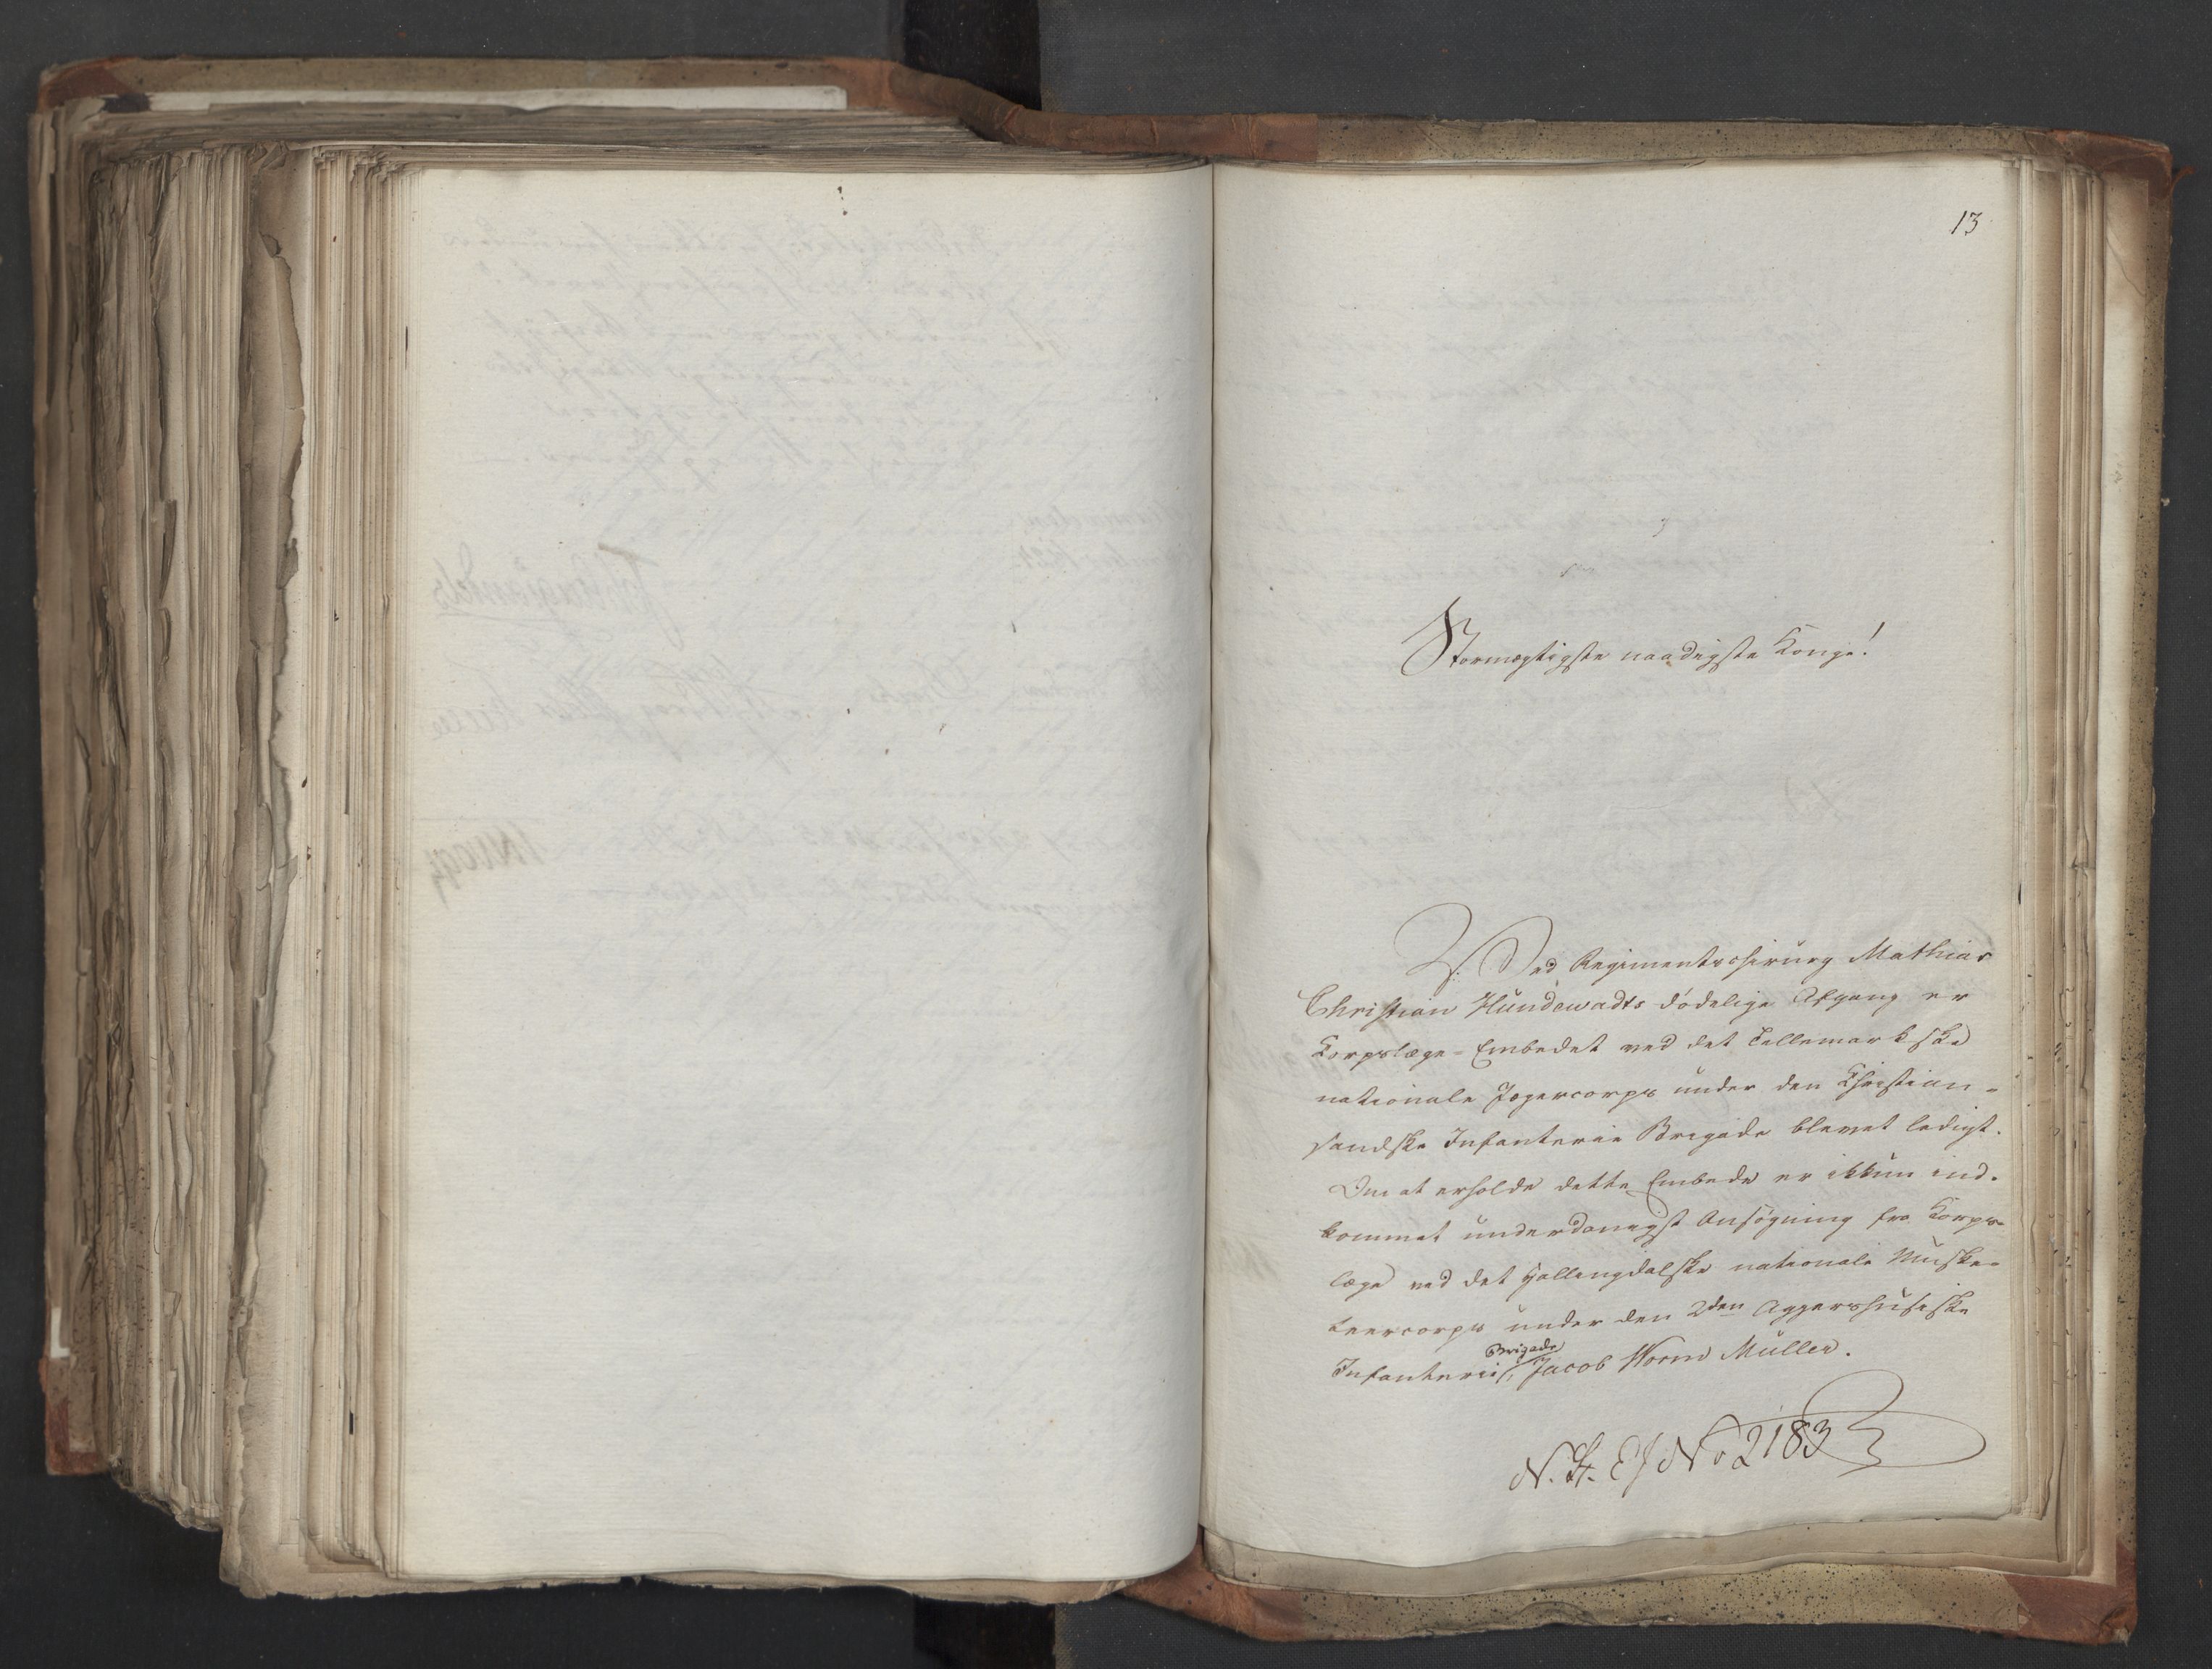 13
Stormægtigste naadigste Konge!
Ved Regimentschirurg Mathias
Christian Hundewadts dødelige Afgang er
Korpslæge-Embedet ved det Tellemarkske
nationale Jægercorps under den Christian-
sandske Infanterie Brigade blevet ledigt.
Om at erholde dette Embede er ikkun ind-
kommet underdanigst Ansøgning fra Korps-
læge ved det Hallingdalske nationale Muske-
teercorps under den 2den Aggershusiske
Brigade
Infanterie, Jacob Worm Müller.
No 2183